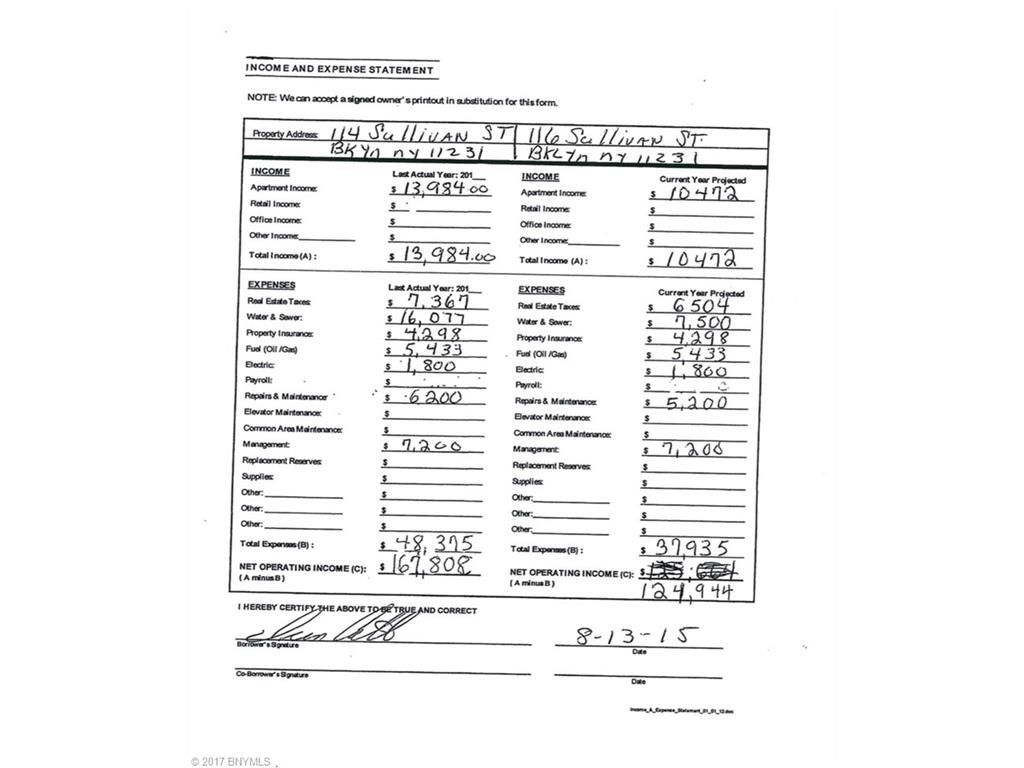 INCOME AND EXPENSE STATEMENT
NOTE: We can accept a signed owner's printout in substitution for this form.
Property Address: 114 Sullivan ST 116 Sullivan ST.
BKYn nY 11231 BKLYn nY 11231
INCOME Last Actual Year: 201__ INCOME Current Year Projected
Apartment Income: $ 13,984.00 Apartment Income: $ 10472
Retail Income: $ Retail Income: $
Office Income: $ Office Income: $
Other Income: $ Other Income: $
Total Income (A) : $ 13,984.00 Total Income (A) : $ 10472
EXPENSES Last Actual Year: 201__ EXPENSES Current Year Projected
Real Estate Taxes: $ 7,367 Real Estate Taxes: $ 6504
Water & Sewer: $ 16,077 Water & Sewer: $ 7,500
Property Insurance: $ 4,298 Property Insurance: $ 4,298
Fuel (Oil /Gas) $ 5,433 Fuel (Oil /Gas) $ 5,433
Electric: $ 1,800 Electric: $ 1,800
Payroll: $ Payroll: $
Repairs & Maintenance: $ 6,200 Repairs & Maintenance: $ 5,200
Elevator Maintenance: $ Elevator Maintenance: $
Common Area Maintenance: $ Common Area Maintenance: $
Management: $ 7,200 Management: $ 7,200
Replacement Reserves: $ Replacement Reserves: $
Supplies: $ Supplies: $
Other: $ Other: $
Other: $ Other: $
Other: $ Other: $
Total Expenses (B) : $ 48,375 Total Expenses (B) : $ 37,935
NET OPERATING INCOME (C): $ 167,808 NET OPERATING INCOME (C): $
( A minus B ) ( A minus B ) 124,944
I HEREBY CERTIFY THE ABOVE TO BE TRUE AND CORRECT
8-13-15
Borrower's Signature Date
Co-Borrower's Signature Date
Income_&_Expense_Statement_01_01_12.doc
© 2017 BNYMLS